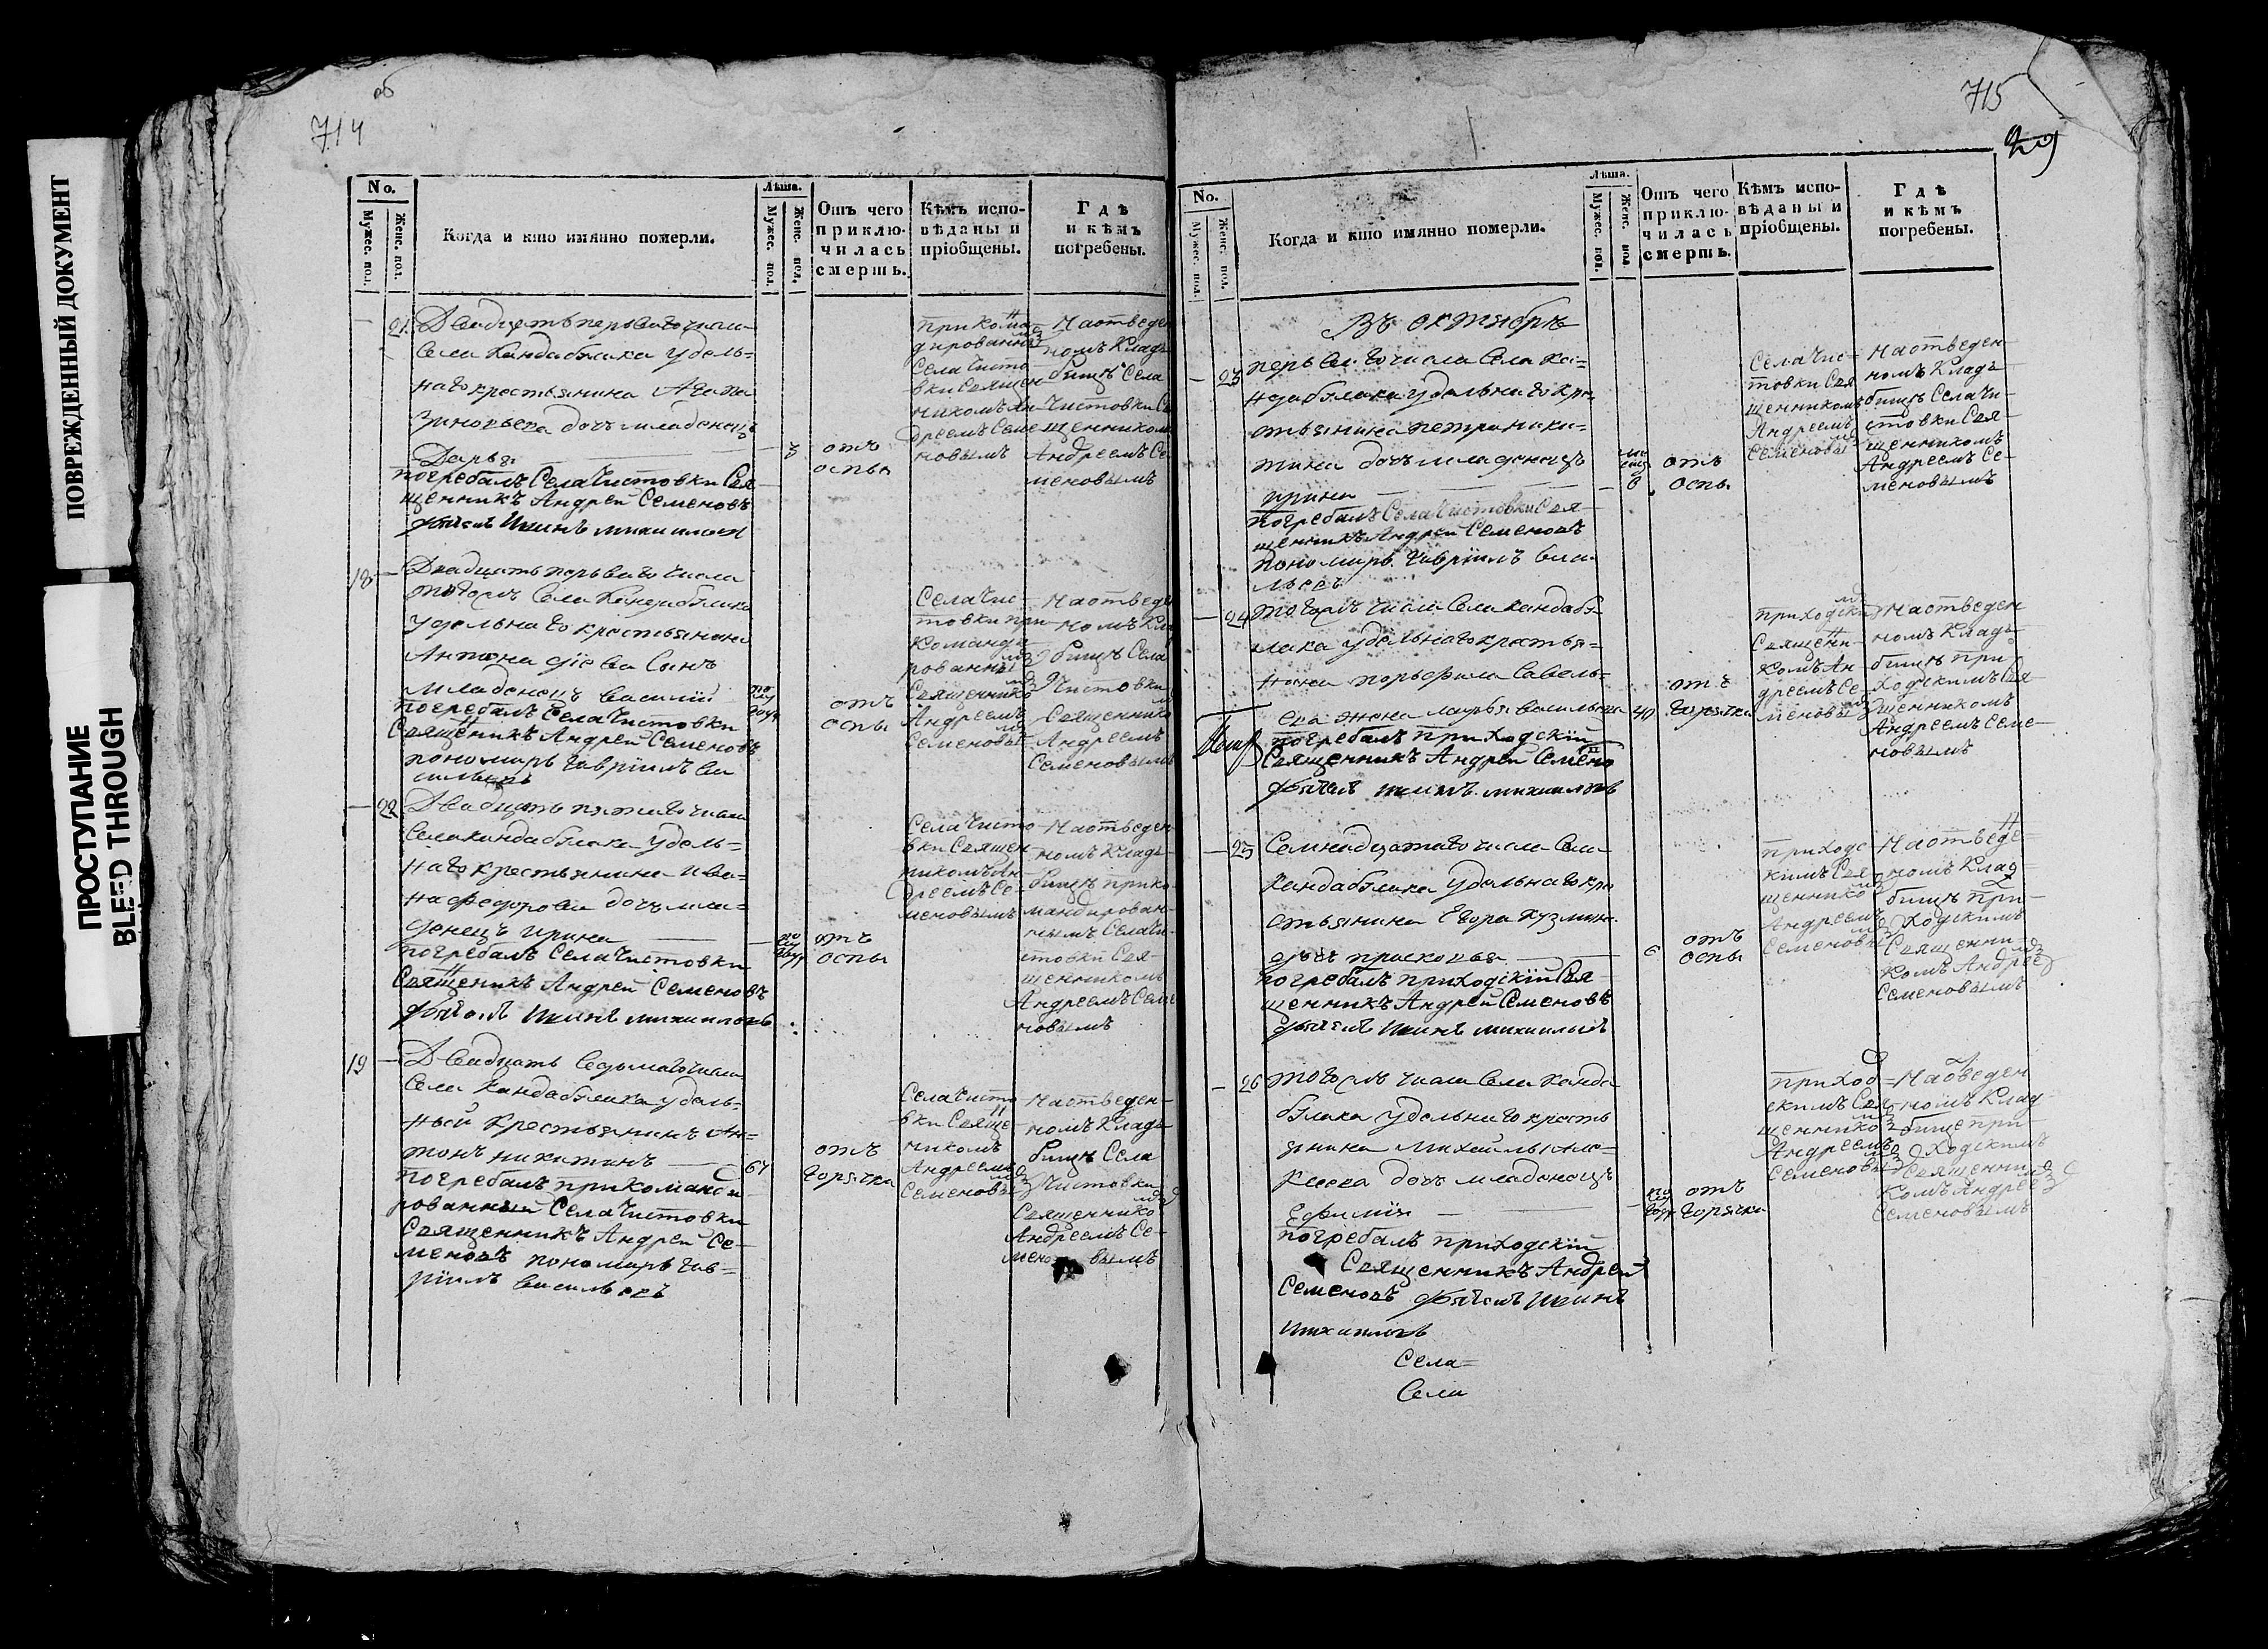 ПОВРЕЖДЕННЫЙ ДОКУМЕНТ
ПРОСТУПАНИЕ
BLEED THROUGH
об
714
No.
Мужес. пол.
Женс. пол.
Когда и кто имянно померли.
Лѣта.
Мужес. пол.
Женс. пол.
Отъ чего
приклю-
чилась
смерть.
Кѣмъ испо-
вѣданы и
пріобщены.
Гдѣ
и кѣмъ
погребены.
21. Двадцать перьваго числа
Села Кандабулака удель=
наго крестьянина
Зиновьева дочь младенецъ
Дарья 3
отъ
оспы
погребалъ Села Чистовки Свя
щенникъ Андрей Семеновъ
прикома
дированны
Села Чисто
вки Священ
никомъ Ан
дреемъ Семе
новымъ
На отведен
номъ клад
бищѣ Села
Чистовки Св
щенником
Андреемъ Се
меновымъ
18 Двадцать перьваго числа
тогожъ Села Кандабулака
удельнаго крестьянина
Сынъ
младенецъ Василій
отъ
оспы
погребалъ Села Чистовки
Священикъ Андрей Семеновъ
пономарь Гавріилъ Ва
сильевъ
Села Чис
товки при
команди
рованны
Священнико
Андреемъ
Семеновы
На отведе
номъ Кла
бищѣ Села
Чистовки
Священнико
Андреемъ
Семеновымъ
22 Двадцать пятаго числа
Села Кандабулака удель=
наго крестьянина Ива=
на Федорова дочь мла=
денецъ Ирина
отъ
оспы
погребалъ Села Чистовки
Священикъ Андрей Семеновъ
Села Чисто
вки Священ
никомъ Ан
дреемъ Се
меновымъ
На отведен
номъ Клад
бищѣ прико
мандирован
нымъ Села Чи
стовки Свя
щенникомъ
Андреемъ Семе
новымъ
19 Двадцать Седьмаго числа
Села Кандабулака удель=
ный крестьянинъ Ан=
тонъ Никитинъ
отъ
горячки
погребалъ прикоманди
рованный Села Чистовки
Священникъ Андрей Се
меновъ пономарь Гав=
ріилъ Васильевъ
Села Чисто
вки Свяще
никомъ
Андреемъ
Семеновы
На отведен
номъ Клад
бищѣ Села
Чистовки
Священнико
Андреемъ Се
мено вымъ
715
29
No.
Мужес. пол.
Женс. пол.
Когда и кто имянно померли.
Лѣта.
Мужес. пол.
Женс. пол
Отъ чего
приклю-
чилась
смерть.
Кѣмъ испо-
вѣданы и
пріобщены.
Гдѣ
и кѣмъ
погребены.
Въ октябрѣ
23 перьваго числа Села Ка=
ндабулака удельнаго кре
стьянина Петра Ники=
тина дочь младенецъ
Ирина
отъ
оспы
погребалъ Села Чистовки Свя
щенникъ Андрей Семеновъ
пономарь Гавріилъ Васи
льевъ
Села Чис
товки Свя
щенникомъ
Андреемъ
Семеновы
На отведен
номъ Клад
бищѣ Села Чи
стовки Свя
щенникомъ
Андреемъ Се
меновымъ
24 тогожъ числа Села Кандабу
лака удельнаго крестья=
нина Порфира Савель=
ева жена Марья Васильева 40
отъ
горячки
погребалъ приходскій
Священникъ Андрей Семено
приходски
Священни
комъ Ан
дреемъ Се
меновы
На отведен
номъ Клад
бищѣ при
ходскимъ Свя
щенникомъ
Андреемъ Семе
новымъ
25 Семнадцатаго числа Села
Кандабулака удельнаго кре
стьянина Егора Кузмина
дочь Прасковья 6
отъ
оспы
погребалъ приходскій Свя
щенникъ Андрей Семеновъ
приходс
кимъ Свя
щеннико
Андреемъ
Семеновы
На отведе
номъ Клад
бищѣ при
ходскимъ
Священни
комъ Андрее
Семеновымъ
26 тогожъ числа Села Канда
булака удельнаго кресть
янина Михайлы Але=
ксеева дочь младенецъ
Ефимія
отъ
горячки
погребалъ приходскій
Священникъ Андрей
Семеновъ
приход
скимъ Свя
щеннико
Андреемъ
Семеновы
На отведен
номъ Клад
бище при
ходскимъ
Священни
комъ Андрее
Семеновымъ
Села=
Села